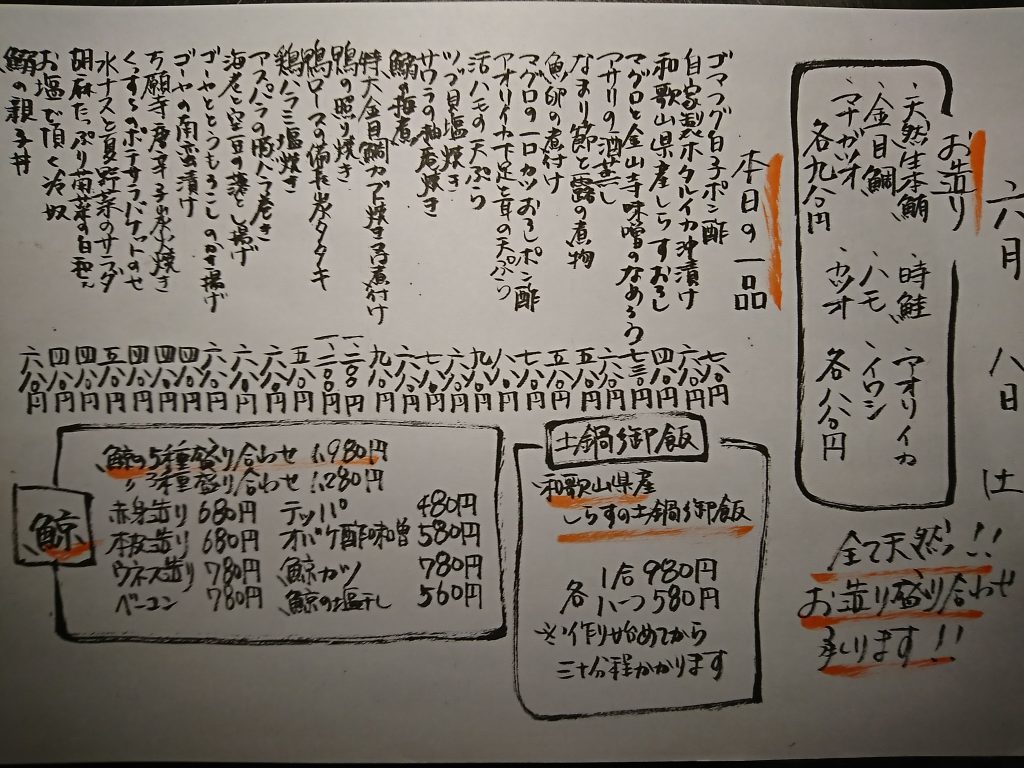 六月 八日 土
お造り
・天然生本鮪 ・時鮭 ・アオリイカ
・金目鯛 ・ハモ ・イワシ
・マナガツオ ・カツオ
各九八〇円 各八八〇円
全て天然!!
お造り盛り合わせ
承ります!!
本日の一品
ゴマフグ白子ポン酢 七八〇円
自家製ホタルイカ沖漬け 六八〇円
和歌山県産しらすおろし 四八〇円
マグロと金山寺味噌のなめろう 七三〇円
アサリの酒蒸し 六八〇円
なまり節と蕗の煮物 五八〇円
魚卵の煮付け 五八〇円
マグロの一口カツおろしポン酢 七八〇円
アオリイカ下足と耳の天ぷら 八八〇円
活ハモの天ぷら 九八〇円
ツブ貝塩焼き 六八〇円
サワラの柚庵焼き 七八〇円
鰯の梅煮 六八〇円
特大金目鯛カブト焼き又煮付け 九八〇円
鴨の照り焼き 一、二〇〇円
鴨ロースの備長炭タタキ 一、二〇〇円
鶏ハラミ塩焼き 五八〇円
アスパラの豚バラ巻き 六八〇円
海老と空豆の落とし揚げ 六八〇円
ゴーヤととうもろこしのかき揚げ 六八〇円
ゴーヤの南蛮漬け 四八〇円
万願寺唐辛子炭火焼き 四八〇円
ポテサラバケットのせ 四八〇円
水ナスと夏野菜のサラダ 五八〇円
胡麻たっぷり菊菜の白和え 四八〇円
お塩で頂く冷奴 四八〇円
鰯の親子丼 六八〇円
土鍋御飯
和歌山県産
しらすの土鍋御飯
1合 980円
各 ハーフ 580円
※作り始めてから
三十分程かかります
鯨
鯨の5種盛り合わせ 1,980円
〃 3種盛り合わせ 1,280円
赤身造り 680円 テッパ 480円
本皮造り 680円 オバケ酢味噌 580円
ウネス造り 780円 鯨カツ 780円
ベーコン 780円 鯨の塩干し 560円